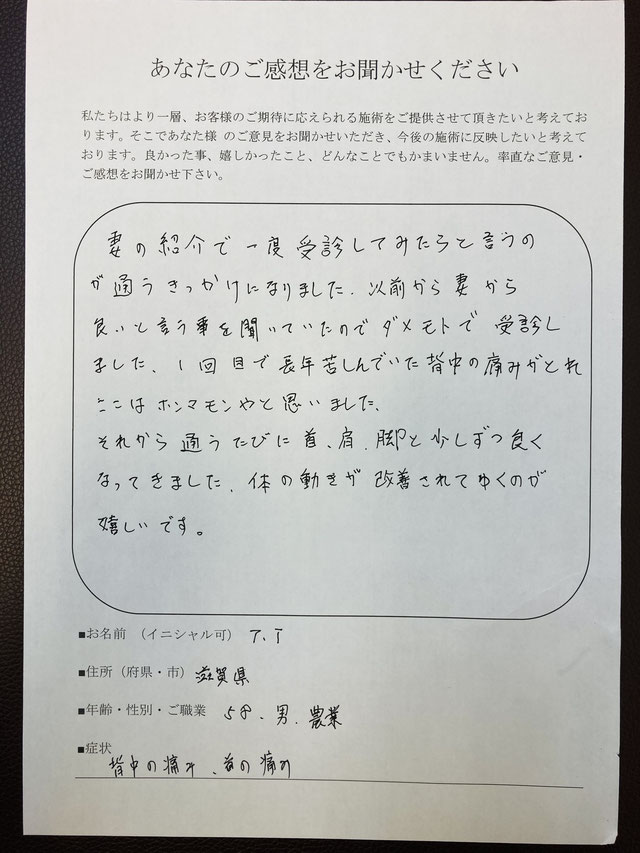 あなたのご感想をお聞かせください
私たちはより一層、お客様のご期待に応えられる施術をご提供させて頂きたいと考えてお
ります。そこであなた様 のご意見をお聞かせいただき、今後の施術に反映したいと考えて
おります。良かった事、嬉しかったこと、どんなことでもかまいません。率直なご意見・
ご感想をお聞かせ下さい。
妻の紹介で一度受診してみたらと言うの
が通うきっかけになりました、以前から妻から
良いと言う事を聞いていたのでダメモトで受診し
ました、1回目で長年苦しんでいた背中の痛みがとれ
ここはホンマモンやと思いました、
それから通うたびに首、肩、脚と少しずつ良く
なってきました、体の動きが改善されてゆくのが
嬉しいです。
■お名前 (イニシャル可) T、I
■住所(府県・市) 滋賀県
■年齢・性別・ご職業 58、男、農業
■症状
背中の痛み、首の痛み